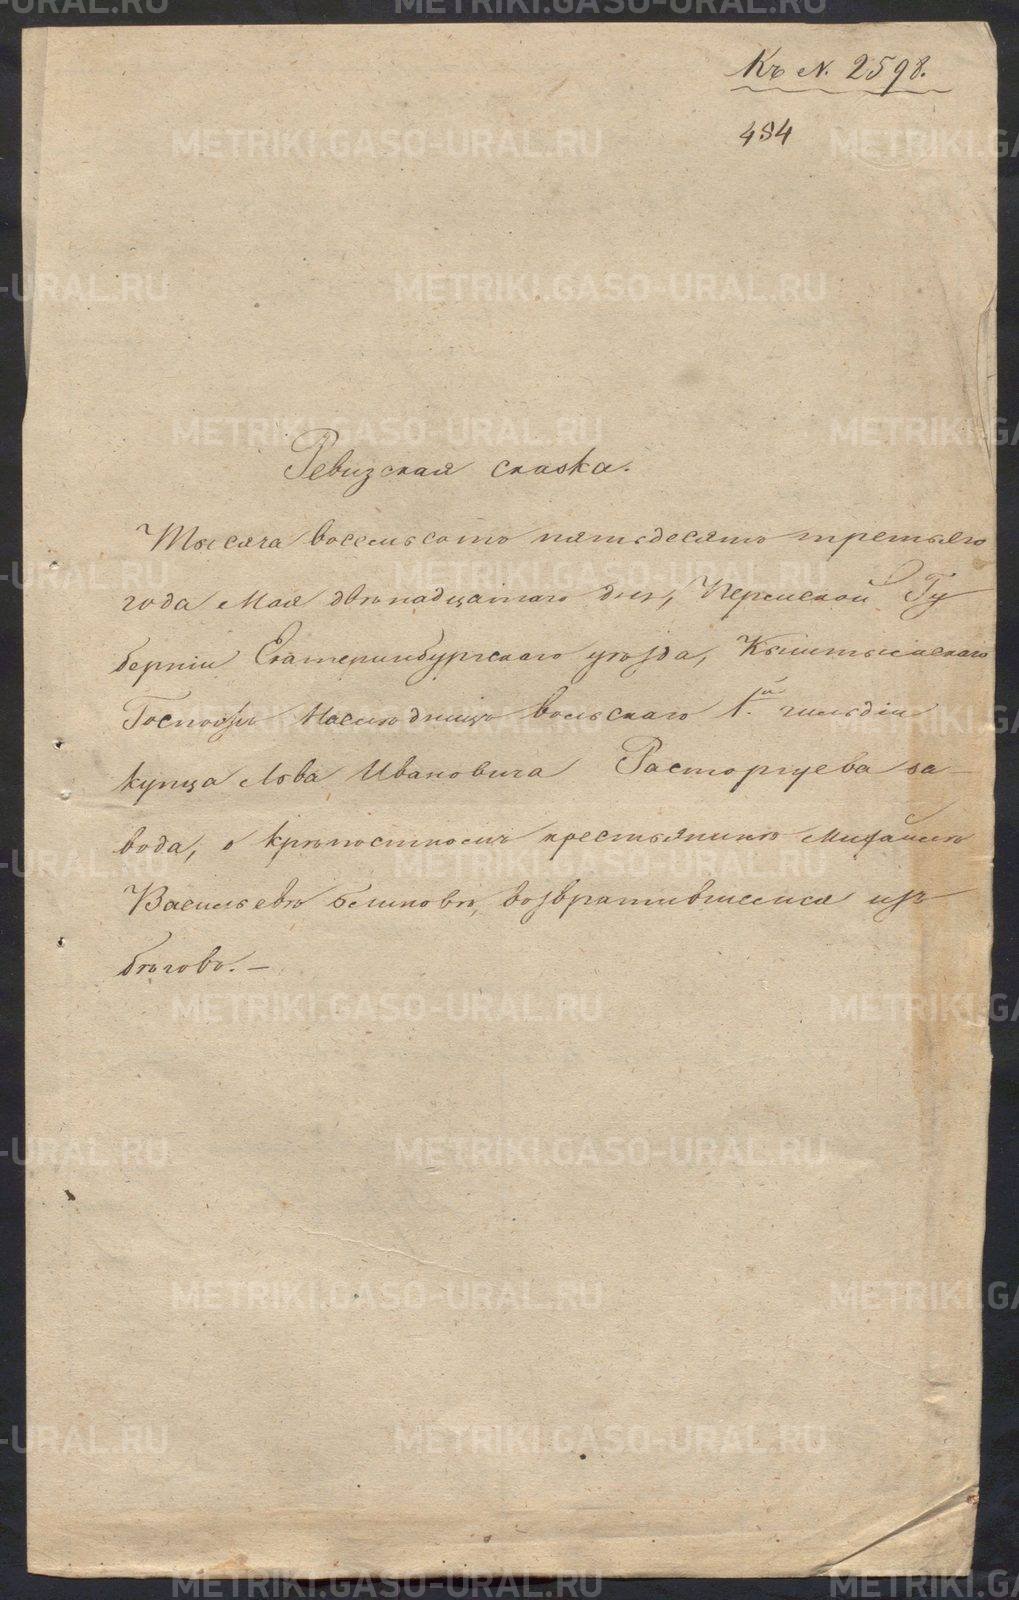 Къ N. 2598.
484
Ревизская сказка.
Тысяча восемьсотъ пятьдесятъ третьяго
года Мая двѣнадцатаго дня, Пермской Гу
берніи Екатеринбургскаго уѣзда, Кыштымскаго
Господъ Наслѣдницъ вольскаго 1.й гильдіи
купца Льва Ивановича Расторгуева за-
вода, о крѣпостномъ крестьянинѣ Михайлѣ
Васильевѣ Бѣликовѣ, возвратившемся изъ
бѣговъ. —
METRIKI.GASO-URAL.RU